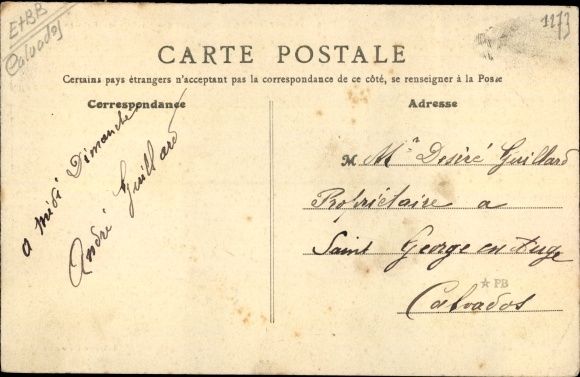 E+BB
Calvados
1273
CARTE POSTALE
Certains pays étrangers n'acceptant pas la correspondance de ce côté, se renseigner à la Poste
Correspondance
a midi Dimanche
André Guillard
Adresse
M Mr Desiré Guillard
Propriétaire a
Saint George en Auge
Calvados
PB